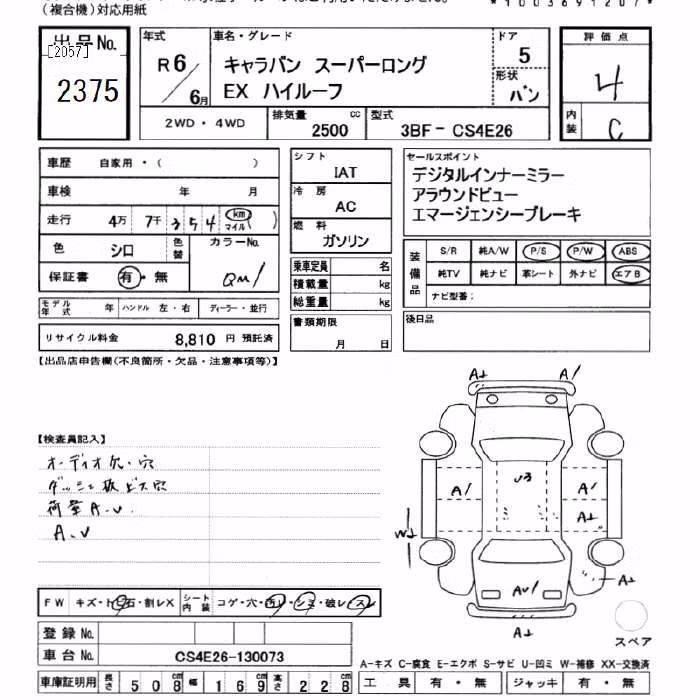 (複合機)対応用紙
*1003691207*
出品No.
[2057]
2375
年式
R6/6月
車名・グレード
キャラバン スーパーロング
EX ハイルーフ
ドア
5
形状
バン
評価点
4
内装
C
2WD・4WD
排気量
2500 cc
型式
3BF-CS4E26
車歴 自家用・( )
車検 年 月
走行 4万 7千 354 (km マイル)
色 シロ 色替 カラーNo.
保証書 有・無 QM1
モデル年式 年 ハンドル 左・右 ディーラー・並行
リサイクル料金 8,810 円 預託済
シフト
IAT
冷房
AC
燃料
ガソリン
乗車定員 名
積載量 kg
総重量 kg
書類期限
月 日
セールスポイント
デジタルインナーミラー
アラウンドビュー
エマージェンシーブレーキ
装備品
S/R 純A/W P/S P/W ABS
純TV 純ナビ 革シート 外ナビ エアB
ナビ型番:
後日品
【出品店申告欄(不良箇所・欠品・注意事項等)】
【検査員記入】
オーディオ欠・穴
ダッシュ板ビス穴
荷室A.U
A.U
A⊥ A/
U3
A/ A/
A⊥
W⊥
A⊥
AU/
A⊥
スペア
FW キズ・ト石・割レX シート内装 コゲ・穴・汚レ・シミ・破レ・スレ
登録No.
車台No. CS4E26-130073
車庫証明用 長さ 508cm 幅 169cm 高さ 228cm
A-キズ C-腐食 E-エクボ S-サビ U-凹ミ W-補修 XX-交換済
工具 有・無 ジャッキ 有・無